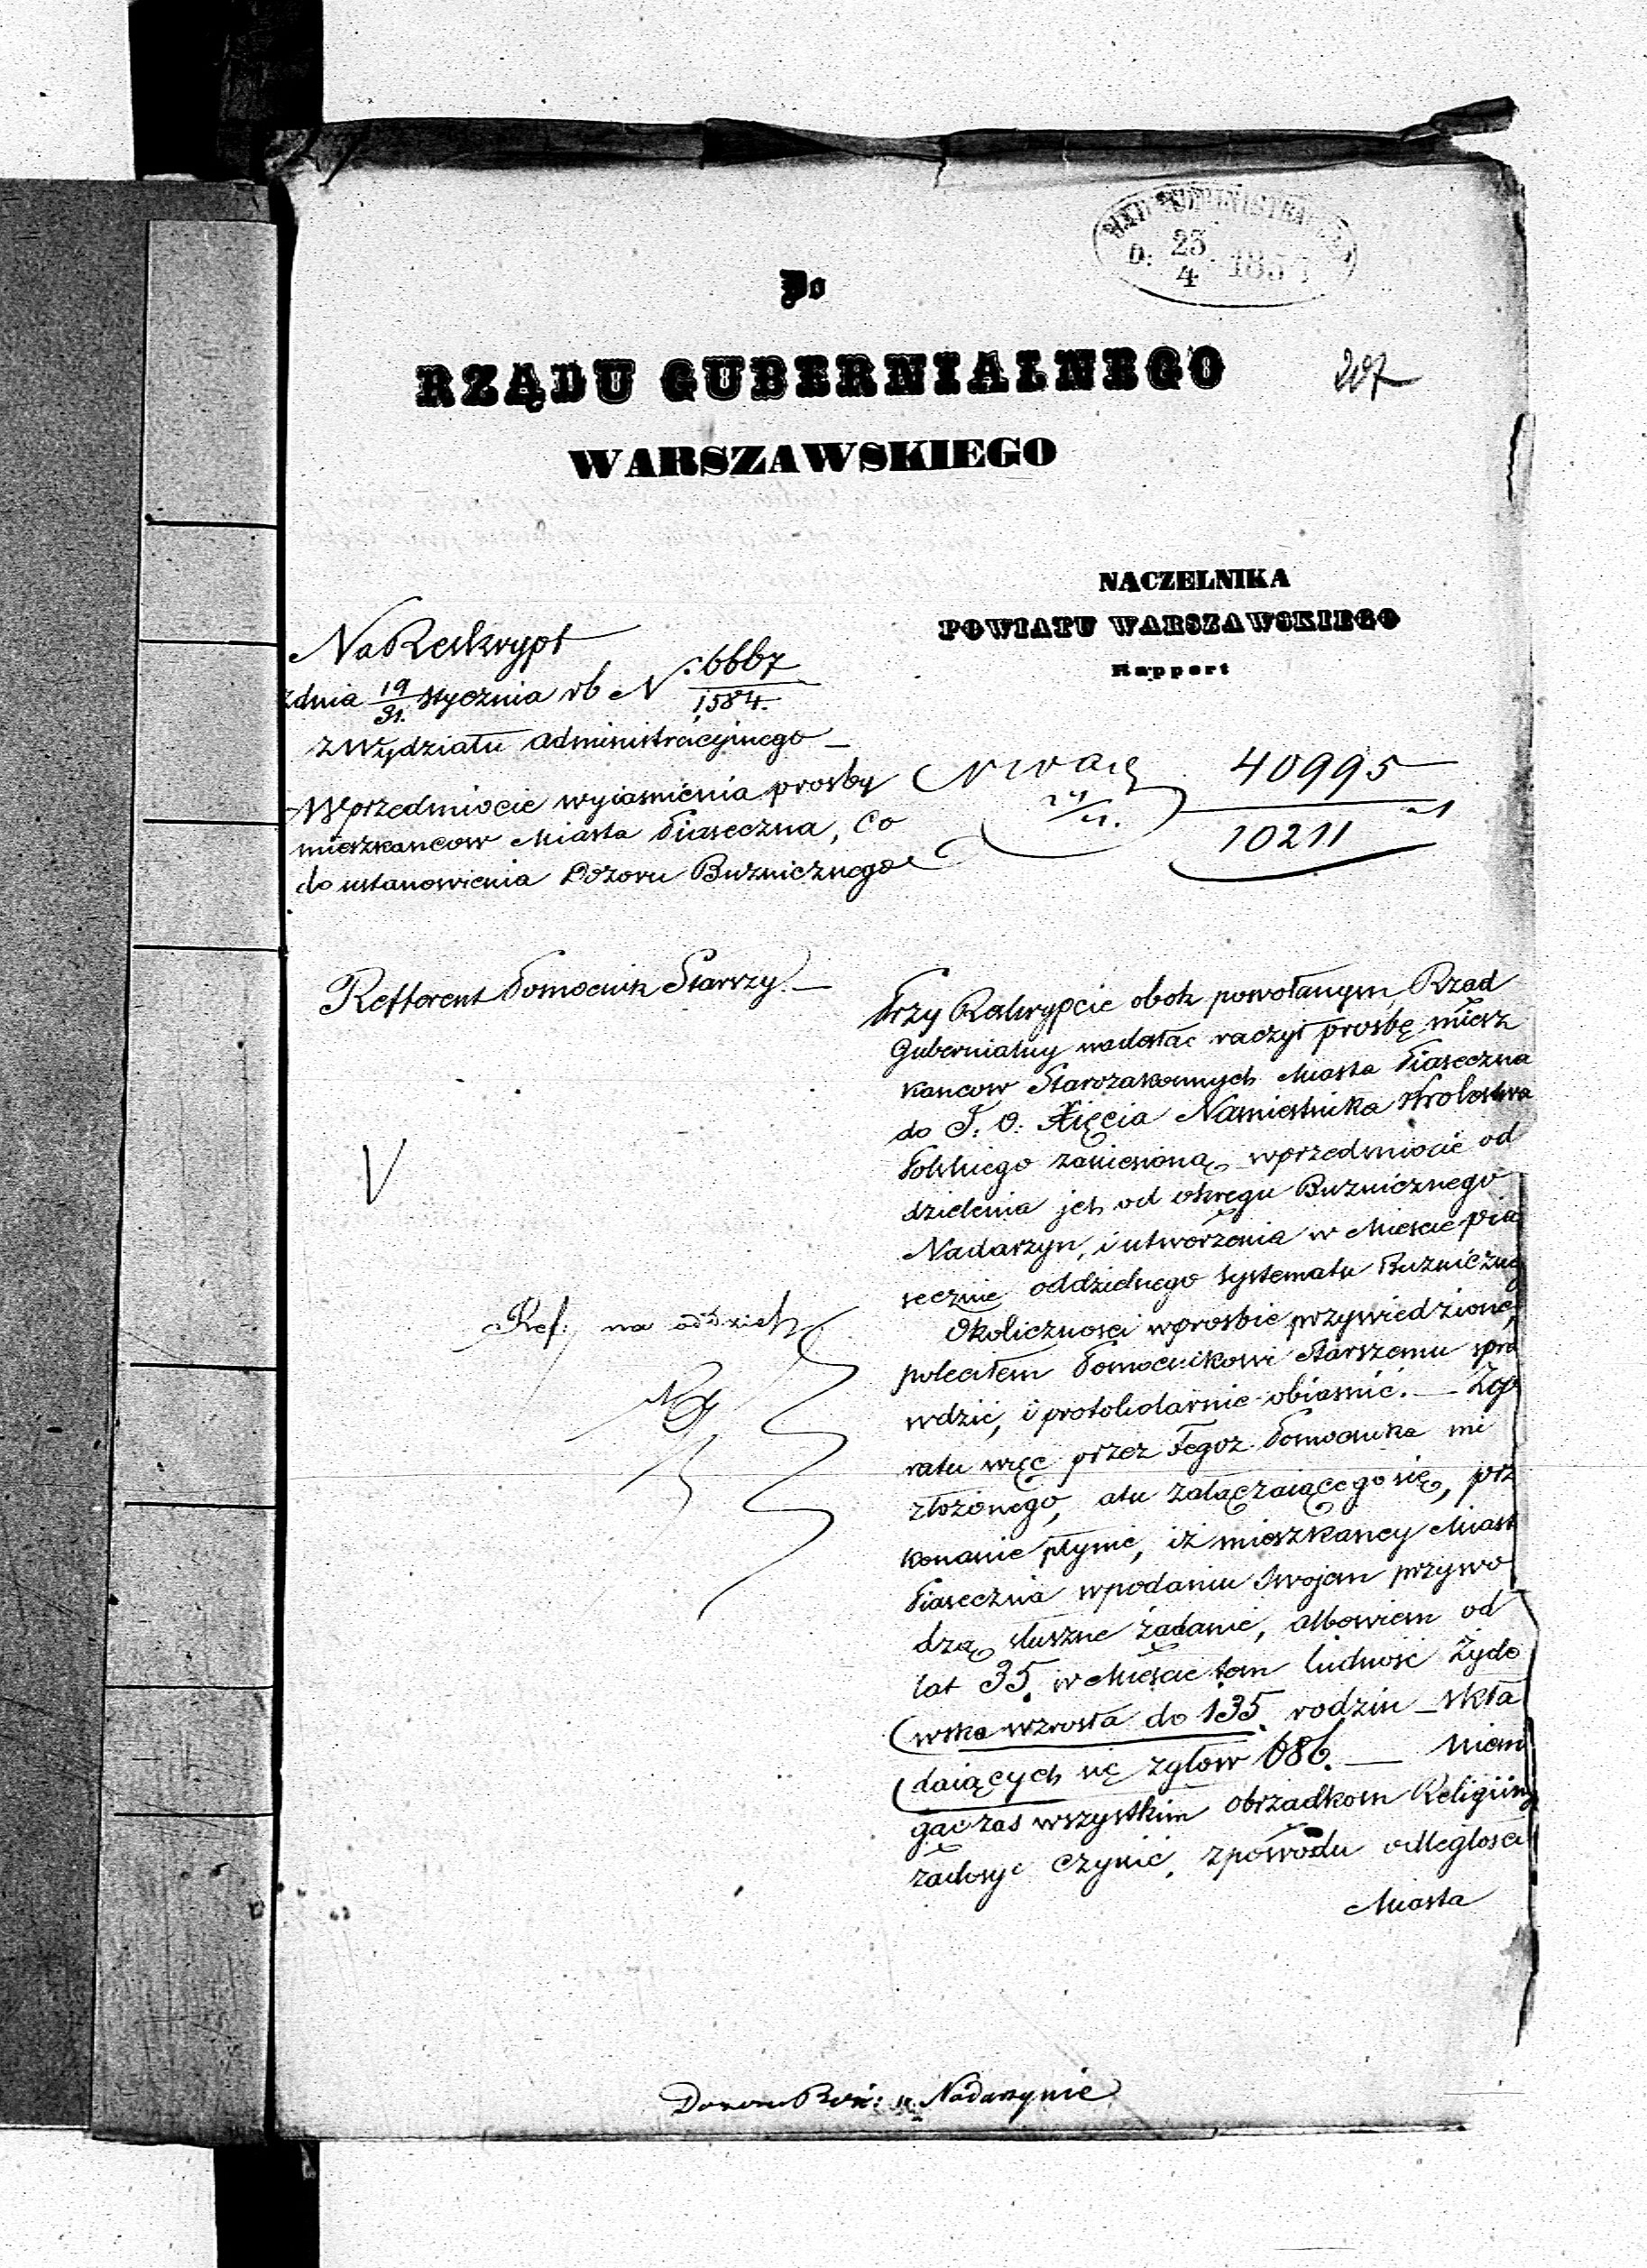 D: 23/4 185
Do
RZĄDU GUBERNIALNEGO
207
WARSZAWSKIEGO
NACZELNIKA
POWIATU WARSZAWSKIEGO
Rapport
Na Reskrypt
z dnia 19/31. Stycznia rb N. 6667/1584.
z Wydziału Administracyjnego
W przedmiocie wyiasnienia prosby
mieszkancow Miasta Piaseczna, co
do ustanowienia Dozoru Buzniczego
40995
10211
Refferent Pomocnik Starszy.
Przy Reskrypcie obok powołanym Rząd
Gubernialny nadesłać raczył prosbę miesz
kancow Starozakonnych Miasta Piaseczna
do J. O. Xięcia Namiestnika Krolestwa
Polskiego zaniesioną, w przedmiocie od
dzielenia jch od okręgu Buzniczego
Nadarzyn, i utworzenia w Miescie Pia
secznie oddzielnego systematu Buznicze
Okolicznosci w prosbie przywiedzione,
poleciłem Pomocnikowi Starszemu spra
wdzić, i protokolarnie obiasnić. — Z op
ratu więc przez Tegoz Pomocnika mi
złozonego, a tu załączaiącego się, prz
konanie płynie, iż mieszkancy Miast
Piaseczna w podaniu swojem przywo
dzą słuszne żądanie, albowiem od
lat 35. w Miescie tem ludność Żydo
wska wzrosła do 135. rodzin skła
daiących się z głow 686. — Niem
gąc zas wszystkim obrządkom Religiin
zadosyc czynić, z powodu odległosci
Miasta
Ref: na oddzieln
Dozoru Boż: w Nadarzynie